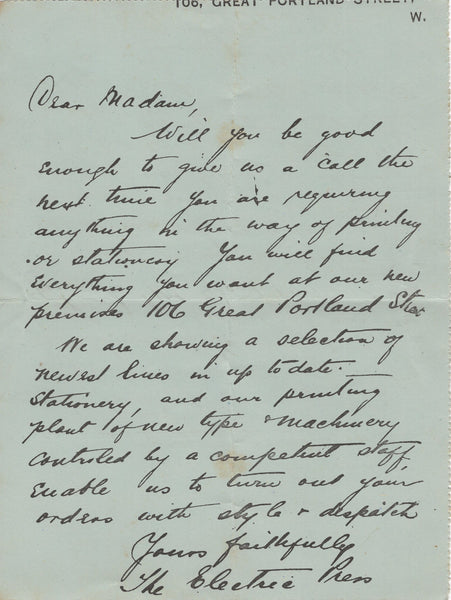 106, GREAT PORTLAND STREET,
W.
Dear Madam,
Will you be good
enough to give us a call the
next time you are requiring
anything in the way of printing
or stationery You will find
everything you want at our new
premises 106 Great Portland Street
We are showing a selection of
newest lines in up to date
Stationery, and our printing
plant of new type & machinery
controled by a competent staff
enable us to turn out your
orders with style & dispatch
Yours faithfully
The Electric Press